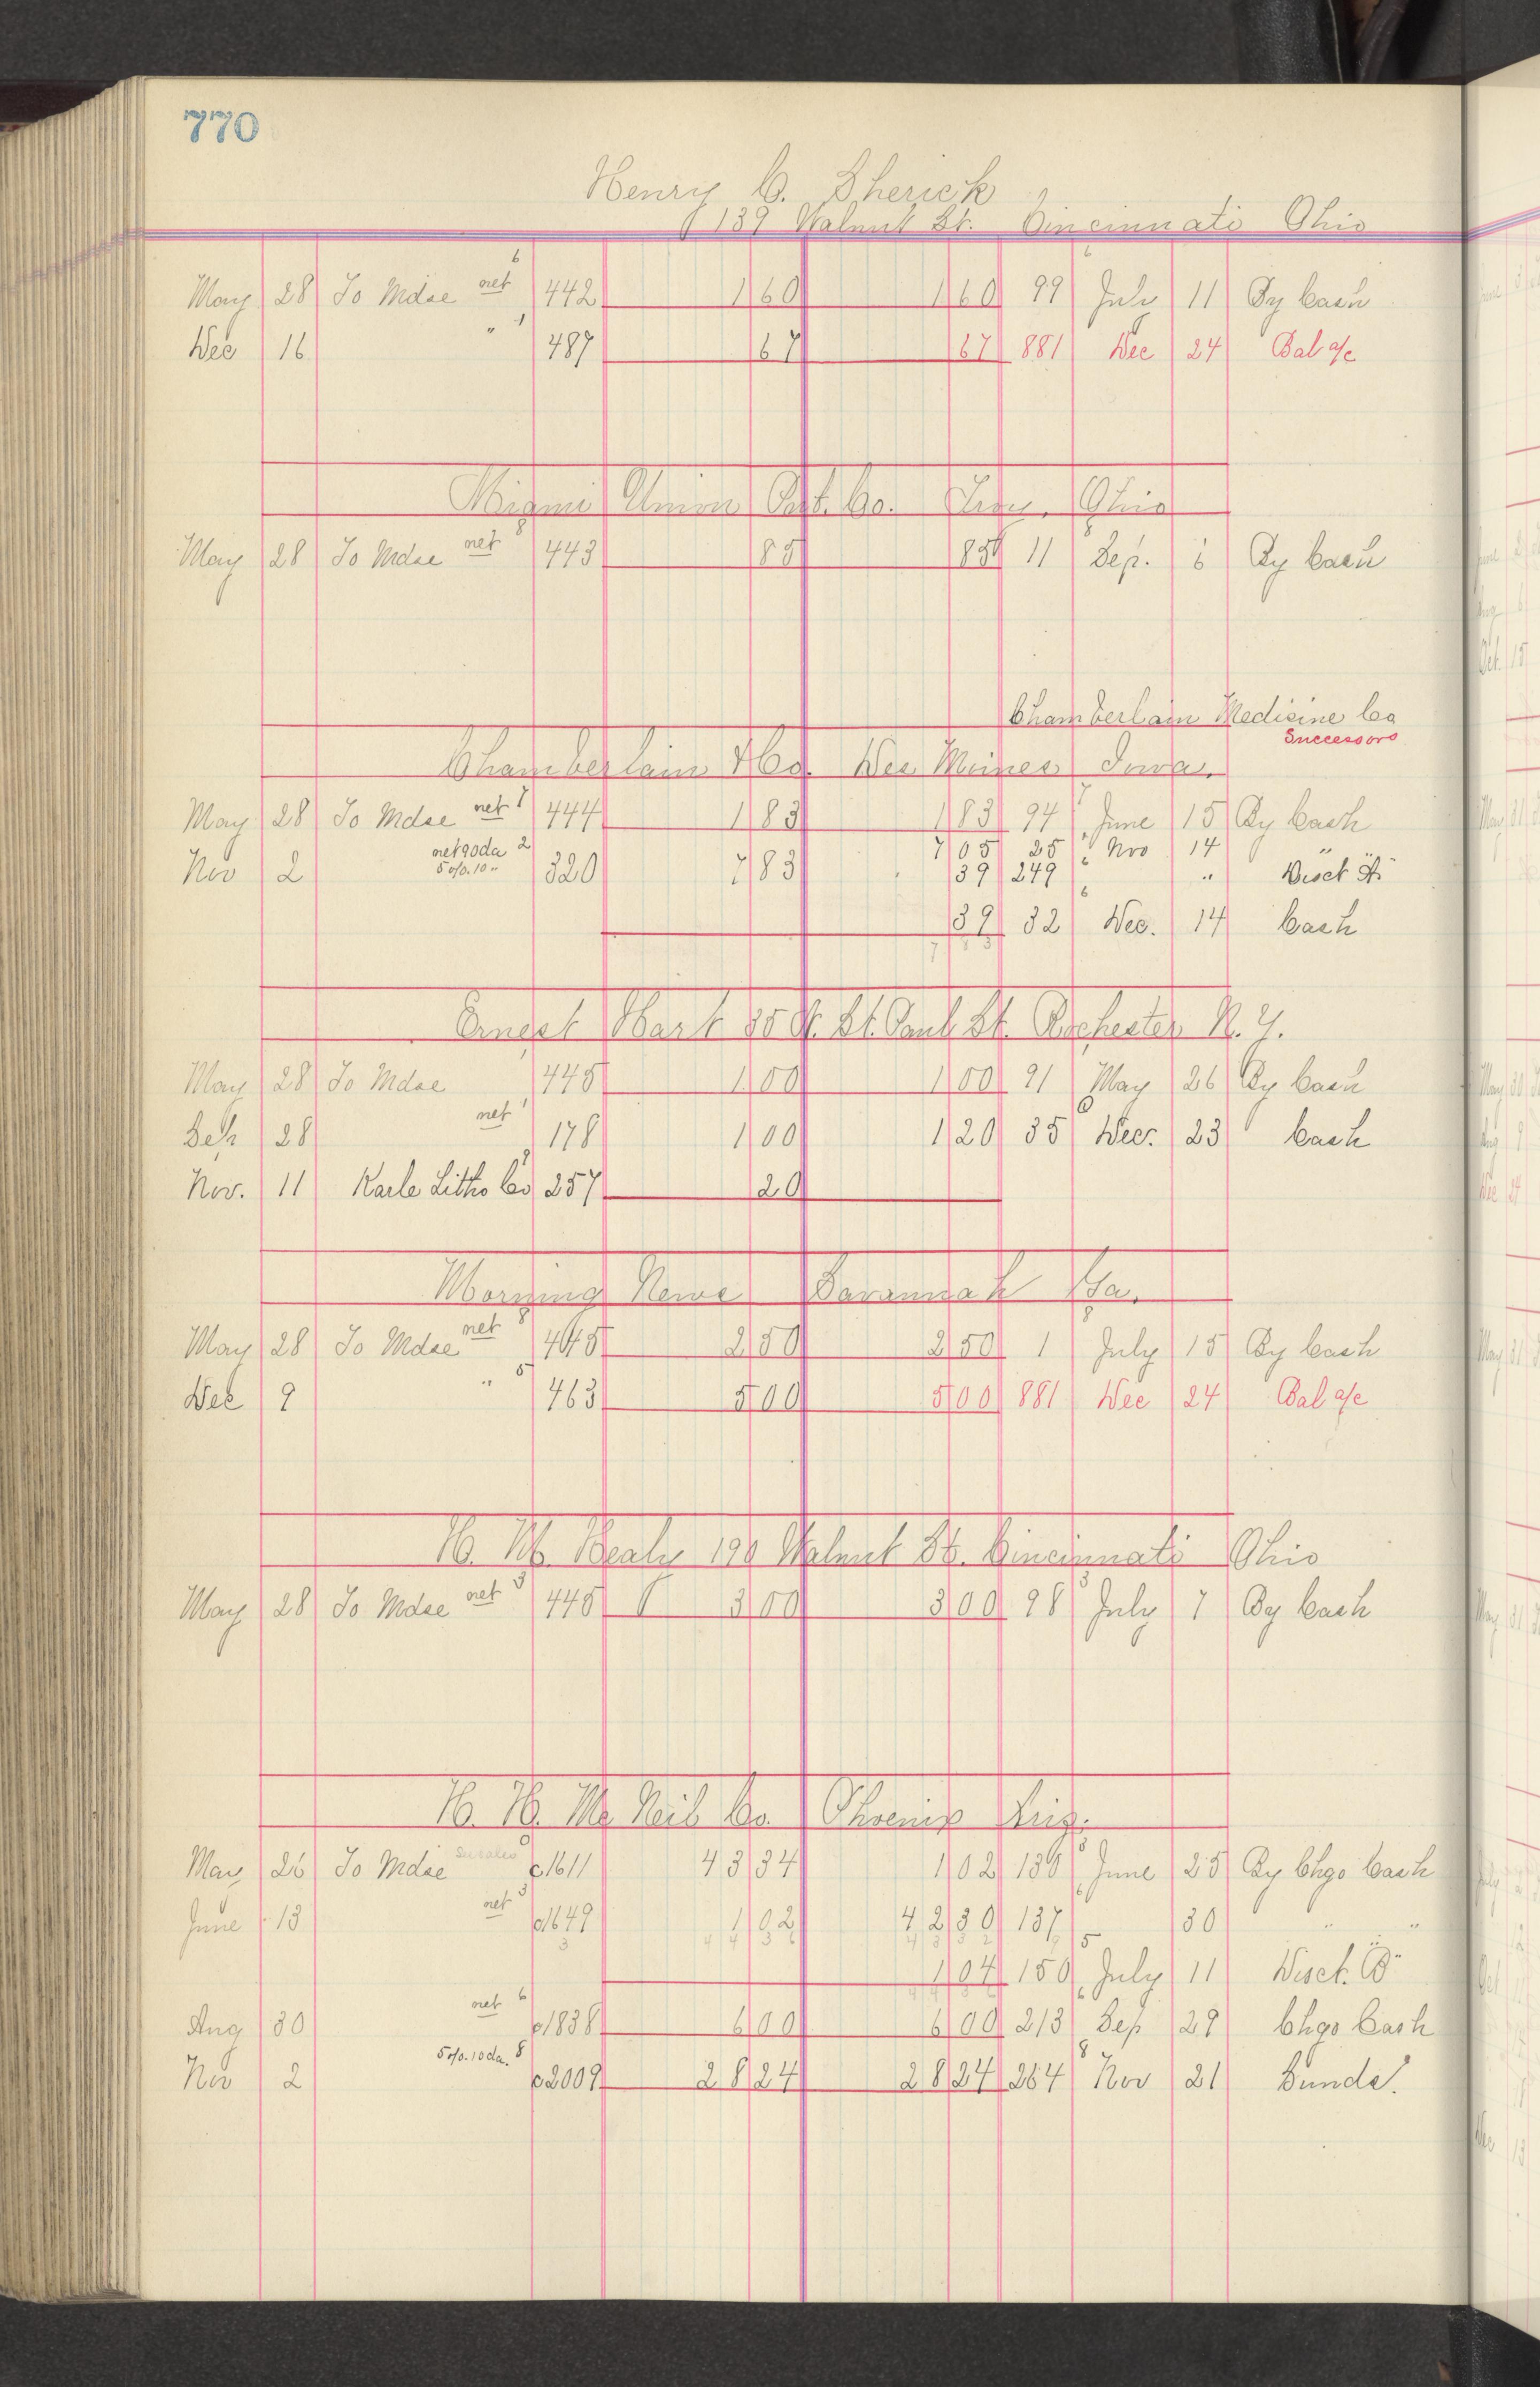 770
Henry C. Sherick
139 Walnut St. Cincinnati Ohio
May 28 To Mdse net 6 442 1 60 1 60 99 6 July 11 By Cash
Dec 16 " 1 487 67 67 881 Dec 24 Bal a/c
Miami Union Pub. Co. Troy, Ohio
May 28 To Mdse net 8 443 85 85 11 8 Sep. 6 By Cash
Chamberlain Medicine Co
Successors
Chamberlain & Co. Des Moines Iowa.
May 28 To Mdse net 7 444 1 83 1 83 94 7 June 15 By Cash
7 05 25 6 Nov 14 "
Nov 2 net 90 da 2 5 o/o. 10 " 320 7 83 39 249 6 " Disct "A"
39 32 6 Dec. 14 Cash
7 8 3
Ernest Hart 35 N. St. Paul St. Rochester N.Y.
May 28 To Mdse 445 1 00 1 00 91 May 26 By Cash
Sep 28 net 1 178 1 00 1 20 35 6 Dec. 23 Cash
Nov. 11 Karle Litho Co 9 257 20
Morning News Savannah Ga.
May 28 To Mdse net 8 445 2 50 2 50 1 8 July 15 By Cash
Dec 9 " 5 463 5 00 5 00 881 Dec 24 Bal a/c
H. M. Healy 190 Walnut St. Cincinnati Ohio
May 28 To Mdse net 3 445 3 00 3 00 98 3 July 7 By Cash
H. H. McNeil Co. Phoenix Ariz.
May 26 To Mdse c1611 43 34 1 02 136 3 June 25 By Chgo Cash
June 13 net 3 c1649 1 02 42 30 137 6 30 " "
3 44 36 43 32
1 04 150 5 July 11 Disct. "B"
Aug 30 net 6 c1838 6 00 6 00 213 6 Sep 29 Chgo Cash
Nov 2 5 o/o. 10 da. 8 c2009 28 24 28 24 264 8 Nov 21 Sunds.